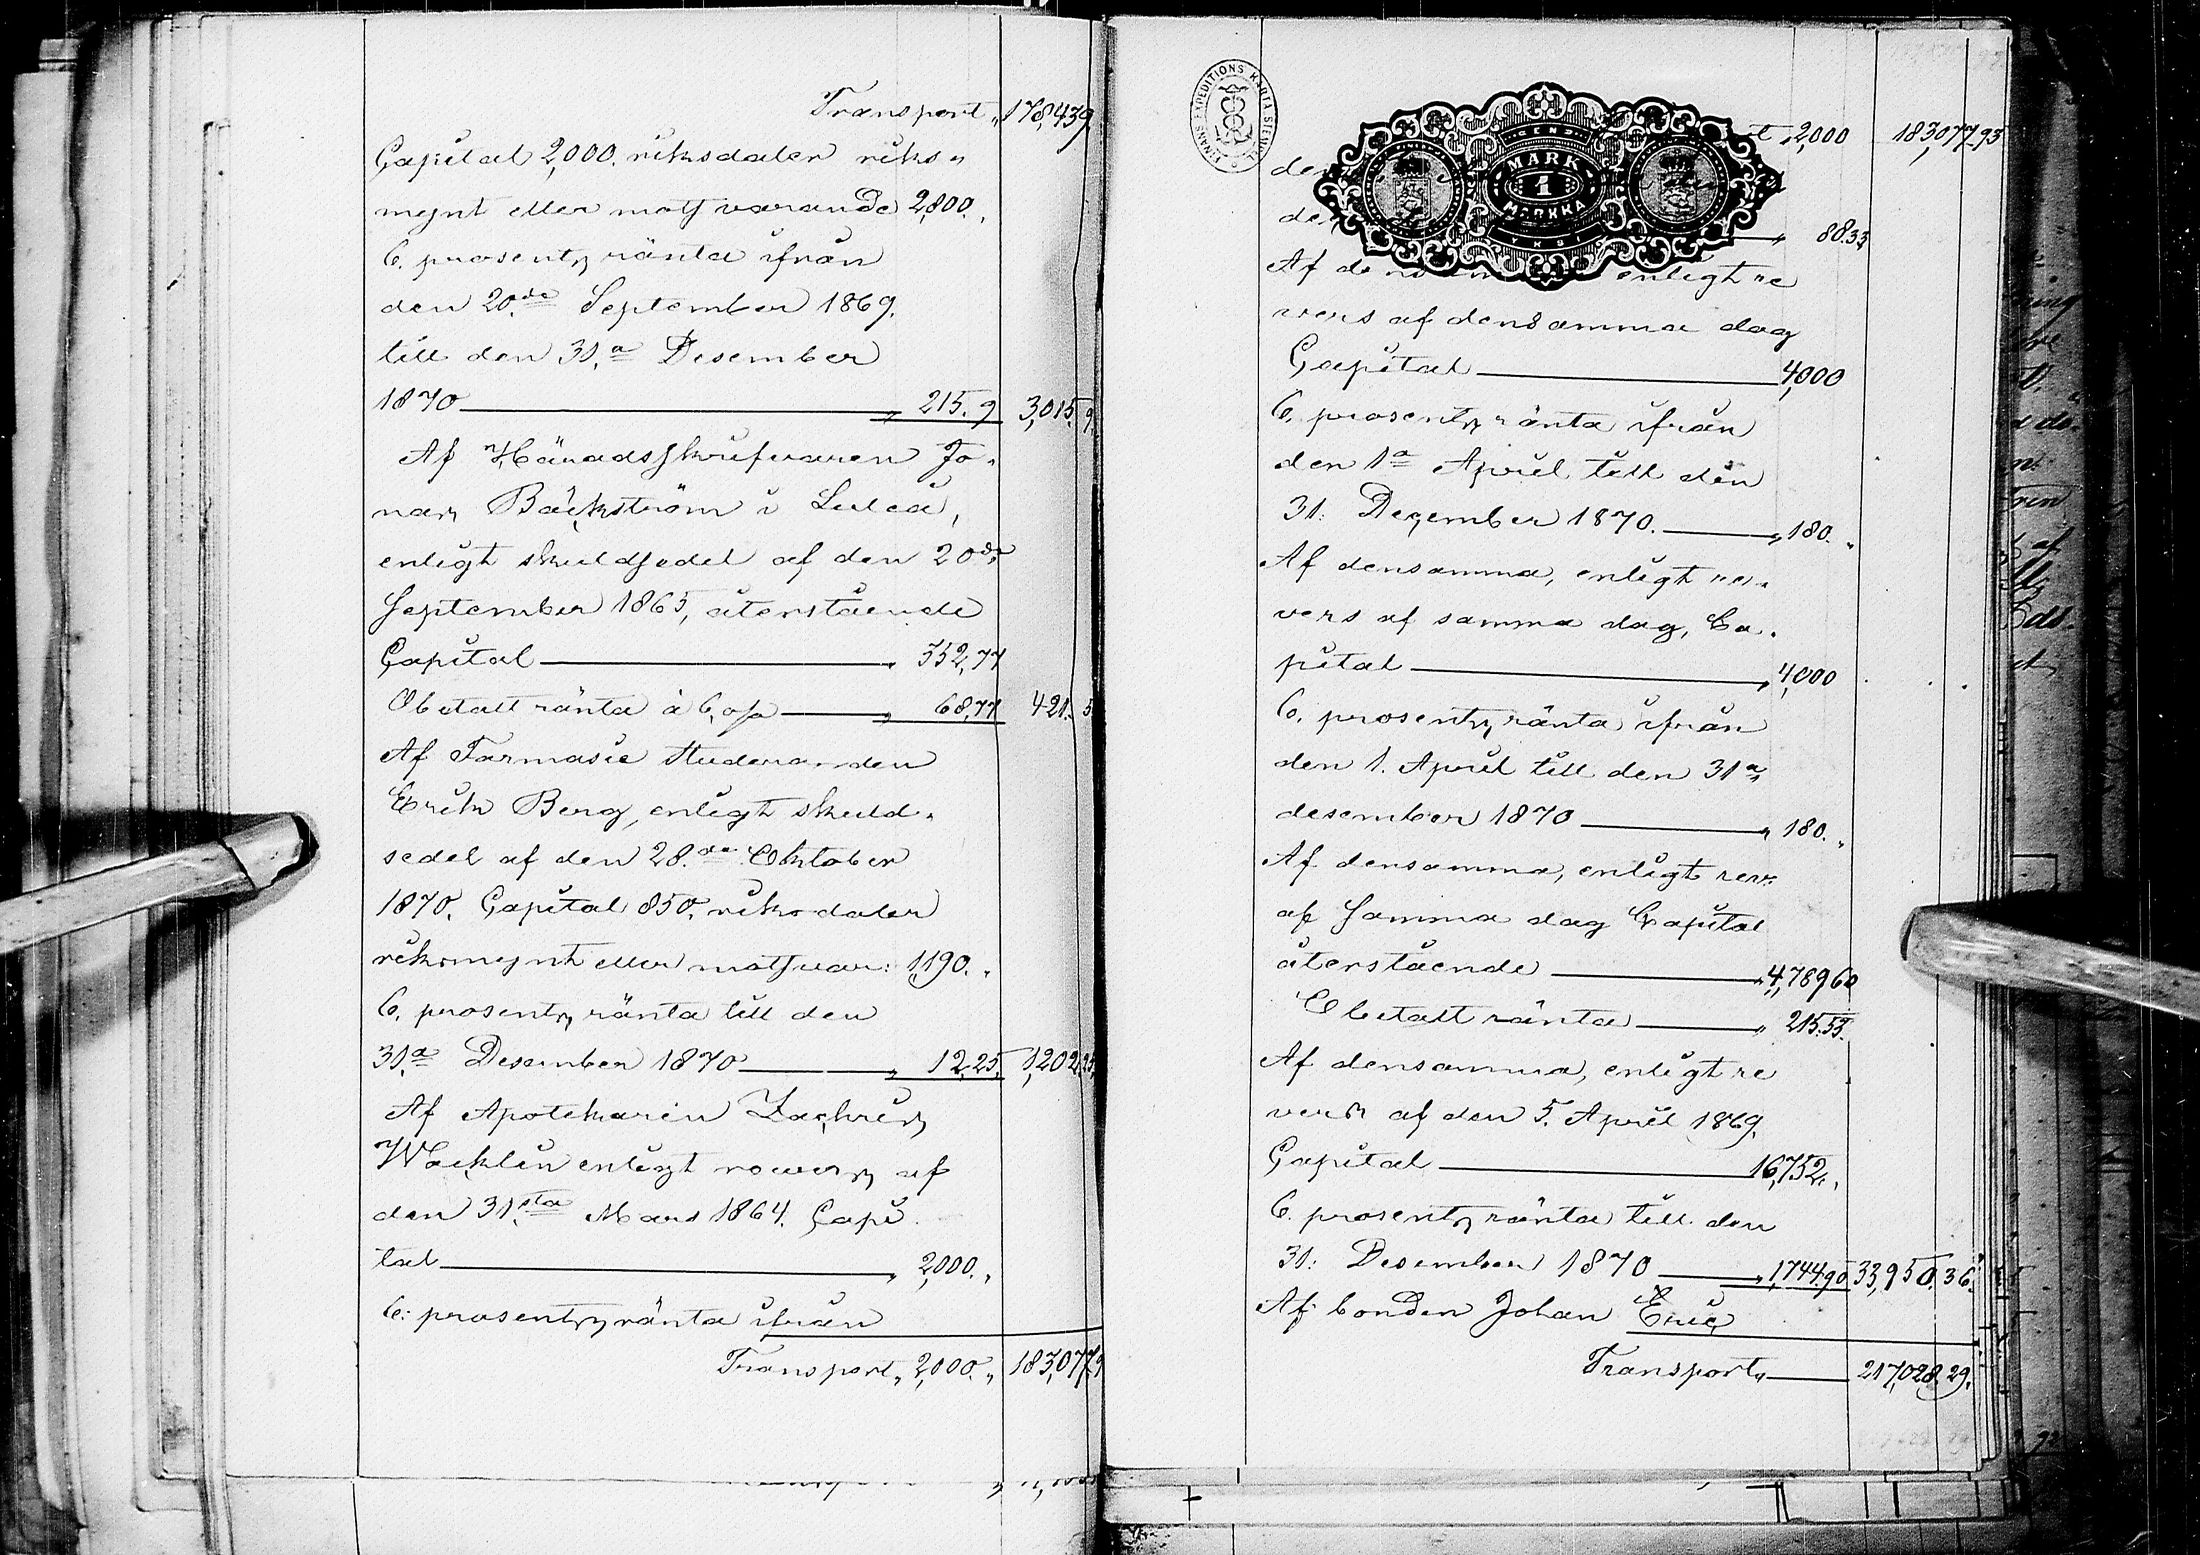 Transport „ 178,439
Capital 2,000. riksdaler riks„
mynt eller motsvarande 2,800. „
6. prosents ränta ifrån
den 20.de September 1869.
till den 31.a Desember
1870 „ 215. 9 3,015. 9.
Af Häradsskrifvaren Jo„
nas Bäckström i Luleå,
enligt skuldsedel af den 20de
September 1865, återstående
Capital „ 352,77
Obetalt ränta à 6, o/o „ 68,77 421. 5
Af Farmasie Studeranden
Erik Berg, enligt skuld„
sedel af den 28.de Oktober
1870. Capital 850. riksdaler
riksmynt eller motsvar: 1,190. „
6. prosents ränta till den
31.a Desember 1870 „ 12,25. 1,202.25.
Af Apotekarin Zachris
Wacklin enligt revers af
den 31.sta Mars 1864. Capi
tal „ 2,000. „
6: prosents ränta ifrån
Transport „ 2,000. „ 183,077.9
FINANS EXPEDITIONS KARTA SIGILL
MARK
1
MARKKA
YKSI
t „ 2,000 183,077.93
de
de „ 88.33
Af densamma enligt re
vers af densamma dag
Capital 4,000
6. prosents ränta ifrån
den 1a April till den
31: December 1870. „ 180. „
Af densamma, enligt re„
vers af samma dag, Ca„
pital „ 4,000
6. prosents ränta ifrån
den 1. April till den 31a
desember 1870 „ 180. „
Af densamma, enligt rev:
af samma dag Capital
återstående „ 4,789 60
Obetalt ränta „ 215.53.
Af densamma, enligt re
vers af den 5. April 1869.
Capital 16,752. „
6. prosents ränta till den
31: Desember 1870 „ 1,744.90 33,950.36.
Af bonden Johan Eric
Transport „ 217,028.29.